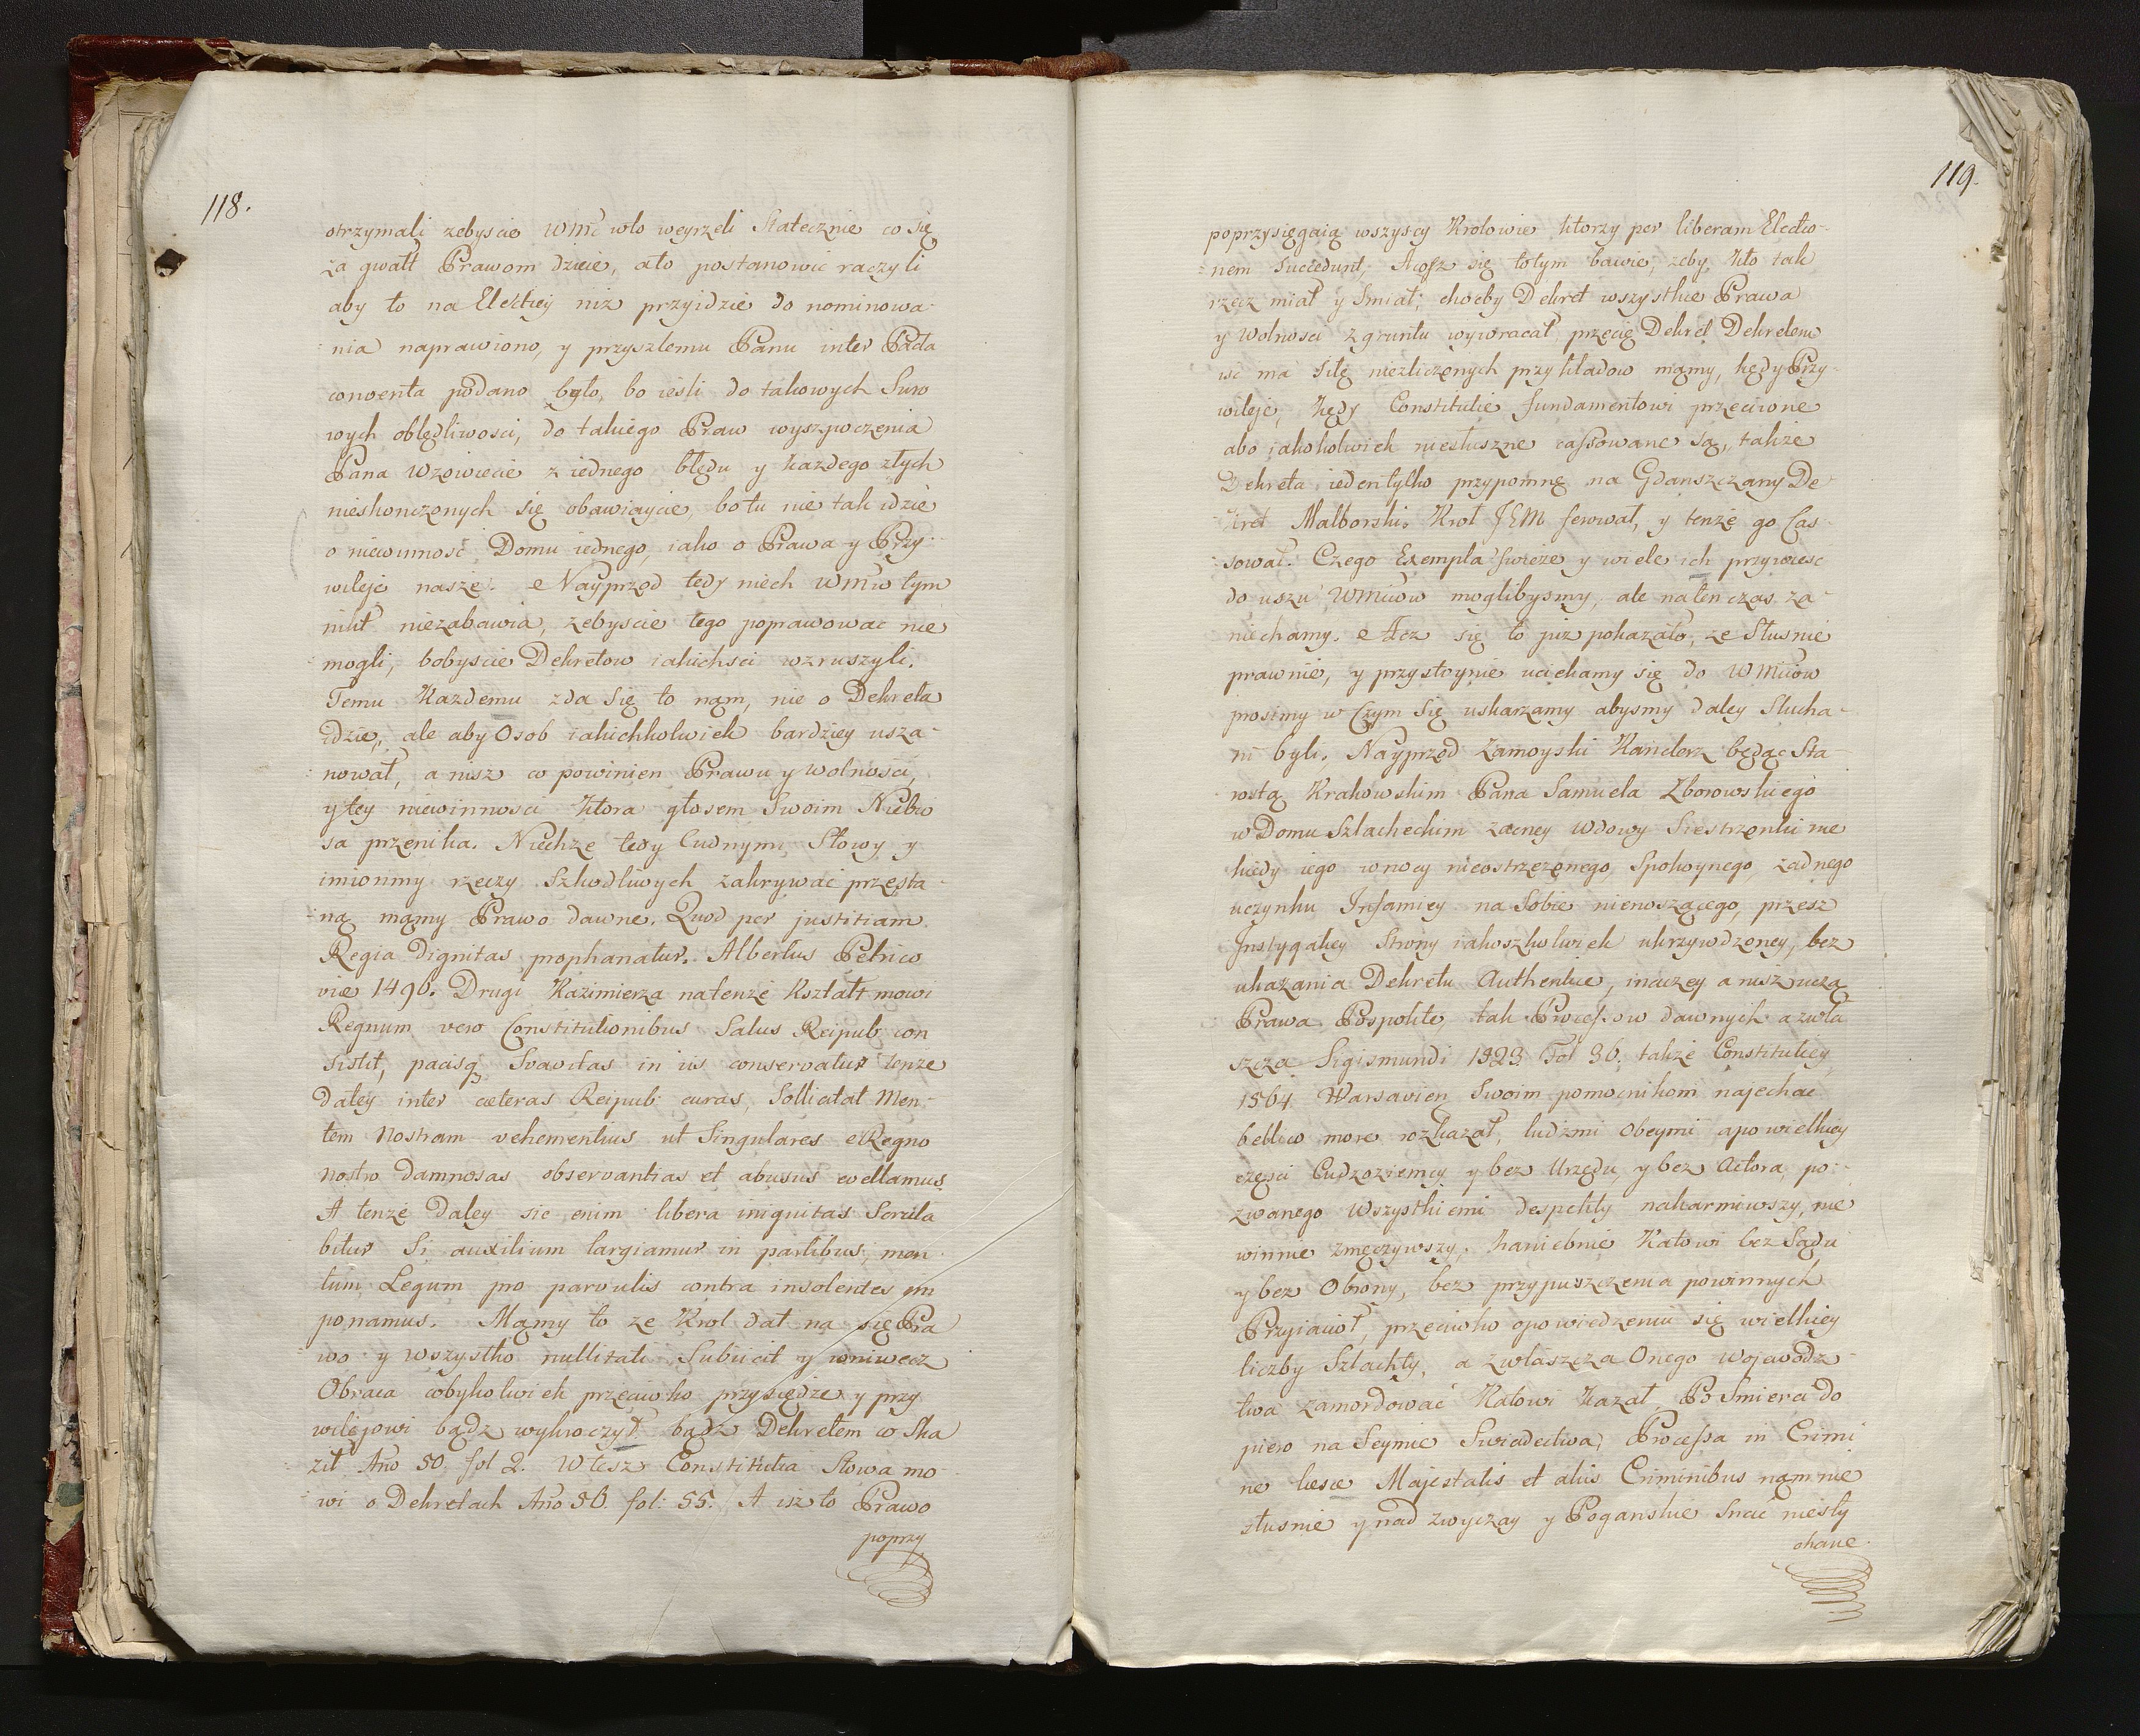 118.
otrzymali zebyscie WMć wto weyrzeli Statecznie co się
za gwałt Prawom dzieie, ato postanowic raczyli
aby to na Elektiey niz przyidzie do nominowa-
nia naprawiono, y przyszłemu Panu inter Pacta
conventa podano było, bo iesli do takowych Suro
wych oblędliwosci, do takiego Praw wyszpoczenia
Pana Wzowiecie z iednego błędu y Kazdego złych
nieskonczonych się obawiaycie, bo tu nie tak idzie
o niewinnosć Domu iednego, iako o Prawa y Przy-
wileje nasze. Nayprzod tedy niech WMw tym
nikt niezabawia, zebyscie tego poprawować nie
mogli, bobyscie Dekretow iakichsci wzruszyli.
Temu Kazdemu zda Się to nam, nie o Dekreta
idzie, ale aby Osob iakichkolwiek bardziey usza-
nował, a nisz co powinien Prawu y wolnosci,
y tey niewinnosci Ktora głosem Swoim Niebio
sa przenika. Niechze tedy Cudnymi Słowy y
imionmy rzeczy Szkodliwych zakrywać przesta-
ną mamy Prawo dawne. Quod per justitiam
Regia Dignitas prophanatur. Albertus Petrico
viæ 1496. Drugi Kazimierza natenze Kształt mowi
Regnum vero Constitutionibus Salus Reipub: con
sistit, pacisq Svavitas in iis conservatur tenze
daley inter cæteras Reipub: curas, Sollicitat Men-
tem Nostram vehementius ut Singulares e Regno
nostro damnosas observantias et abusus evellamus
A tenze daley sic enim libera iniquitas Servila
bitur Si auxilium largiamur in partibus, men
tum Legum pro parvulis contra insolentes im
ponamus. Mamy to ze Krol dał na się Pra
wo y wszystko nullitati Subiicit y wniwecz
Obraca cobykolwiek przeciwko przysiędze y przy
wilejowi bądz wykroczył bądz Dekretem co Ska
ził Año 50. fol 2. Wtesz Constitutia Słowa mo-
wi o Dekretach Año 56. fol: 55. A isz to Prawo
poprzy
119.
poprzysięgaią wszyscy Krolowie ktorzy per liberam Electio-
nem succedunt, Acosz się totym bawie, zeby Kto tak
rzecz miał y Smiał, choćby Dekret wszystkie Prawa
y Wolnosci z gruntu wywracał, przecię Dekret Dekretem
isć ma Siłę niezliczonych przykładow mamy, kędy Przy-
wileje, Kędy Constitutie fundamentowi przeciwne
abo jakokolwiek niesłuszne cassowane są, takze
Dekreta ieden tylko przypomnę na Gdanszczany De-
kret Malborski. Krol JEM ferował, y tenze go Cas-
sował. Czego Exempla swieze y wiele ich przywiesć
do uszu WMciow moglibysmy, ale natenczas za-
niechamy. Acz się to juz pokazało, ze Słusnie
prawnie, y przystoynie uciekamy się do WMciow
prosimy w Czym Się uskarzamy abysmy daley Słucha-
ni byli. Nayprzod Zamoyski Kanclerz będąc Sta
rostą Krakowskim Pana Samuela Zborowskiego
w Domu Szlacheckim zacney Wdowy Siestrzonki nie
kiedy iego w nocy nieostrzezonego, Spokoynego, zadnego
uczynku Infamiey na Sobie nienoszącego, przesz
Instygatiey Strony iakoszkolwiek ukrzywdzoney, bez
ukazania Dekretu Authentice, inaczey anisz uczą
Prawa Pospolite, tak Procesow dawnych a zwła
szcza Sigismundi 1523. Fol 36. takze Constitutiey
1564. Warsavien, Swoim pomocnikom najechać
bellico more rozkazał, ludzmi Obcymi a po wielkiey
częsci Cudzoziemcy y bez Urzędu, y bez Actora, po-
zwanego Wszystkiemi despekty nakarmiwszy, nie
winnie zmęczywszy, haniebnie Katowi bez Sądu
y bez Obrony, bez przypuszczenia powinnych
Przyiacioł, przeciwko opowiedzeniu się wielkiey
liczby Szlachty, a zwłaszcza Onego Wojewodz-
twa zamordować Katowi Kazał. Po Smierci do
piero na Seymie Swiadectwa, Processa in Crimi
ne læsæ Majestatis et aliis Criminibus nam nie
słusnie y nad zwyczay y Poganskie Snać niesły
chane.